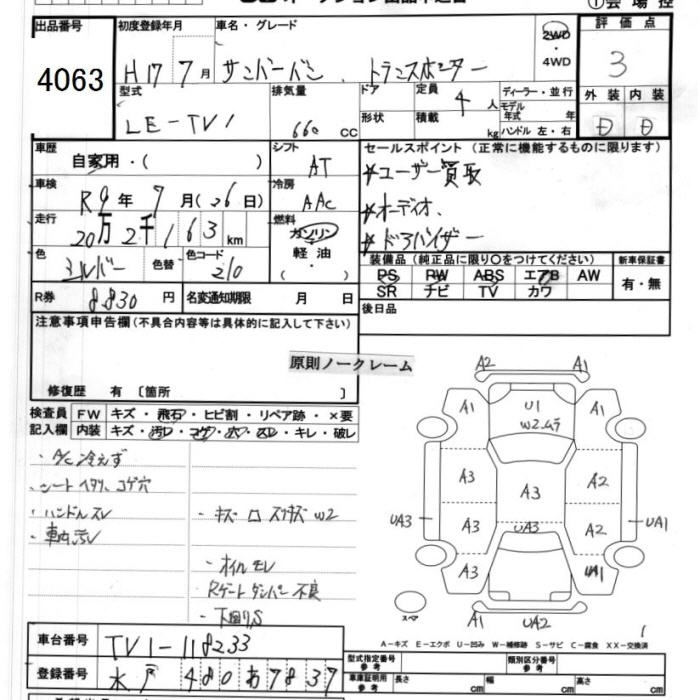 ① 会場控
出品番号
4063
初度登録年月
H17 7月
車名・グレード
サンバーバン トランスポーター
2WD
・
4WD
評価点
3
型式
LE-TV1
排気量
660 CC
ドア
形状
定員 4 人
積載 kg
ディーラー・並行
モデル年式 年
ハンドル 左・右
外装 内装
D D
車歴
自家用・( )
シフト
AT
車検
R9年 7月(26日)
冷房
AAC
走行
20万2千163km
燃料
ガソリン
軽油
・
( )
色
シルバー
色替
色コード
210
R券 8830円
名変通知期限 月 日
セールスポイント (正常に機能するものに限ります)
*ユーザー買取
*オーディオ、
*ドアバイザー
装備品(純正品に限り○をつけてください)
PS PW ABS エアB AW
SR ナビ TV カワ
新車保証書
有・無
後日品
注意事項申告欄(不具合内容等は具体的に記入して下さい)
原則ノークレーム
修復歴 有 〔箇所 〕
検査員記入欄
FW キズ・飛石・ヒビ割・リペア跡・×要
内装 キズ・汚レ・コゲ・穴・スレ・キレ・破レ
・A/C 冷えず
・シートヘタリ、コゲ穴
・ハンドルスレ
・車内汚レ
・キズ ロ スリキズ W2
・オイルモレ
Rゲートダンパー不良
・下回りS
A2 A1
A1 U1 A1
W2ムラ
A3 A3 A2
UA3 A3 UA3 A2 UA1
A3 UA1
スペア
A1 UA2
A-キズ E-エクボ U-凹み W-補修跡 S-サビ C-腐食 XX-交換済
車台番号 TV1-118233
登録番号 水戸 480 あ 7837
型式指定番号 参考
類別区分番号 参考
車庫証明用 参考
長さ cm
幅 cm
高さ cm